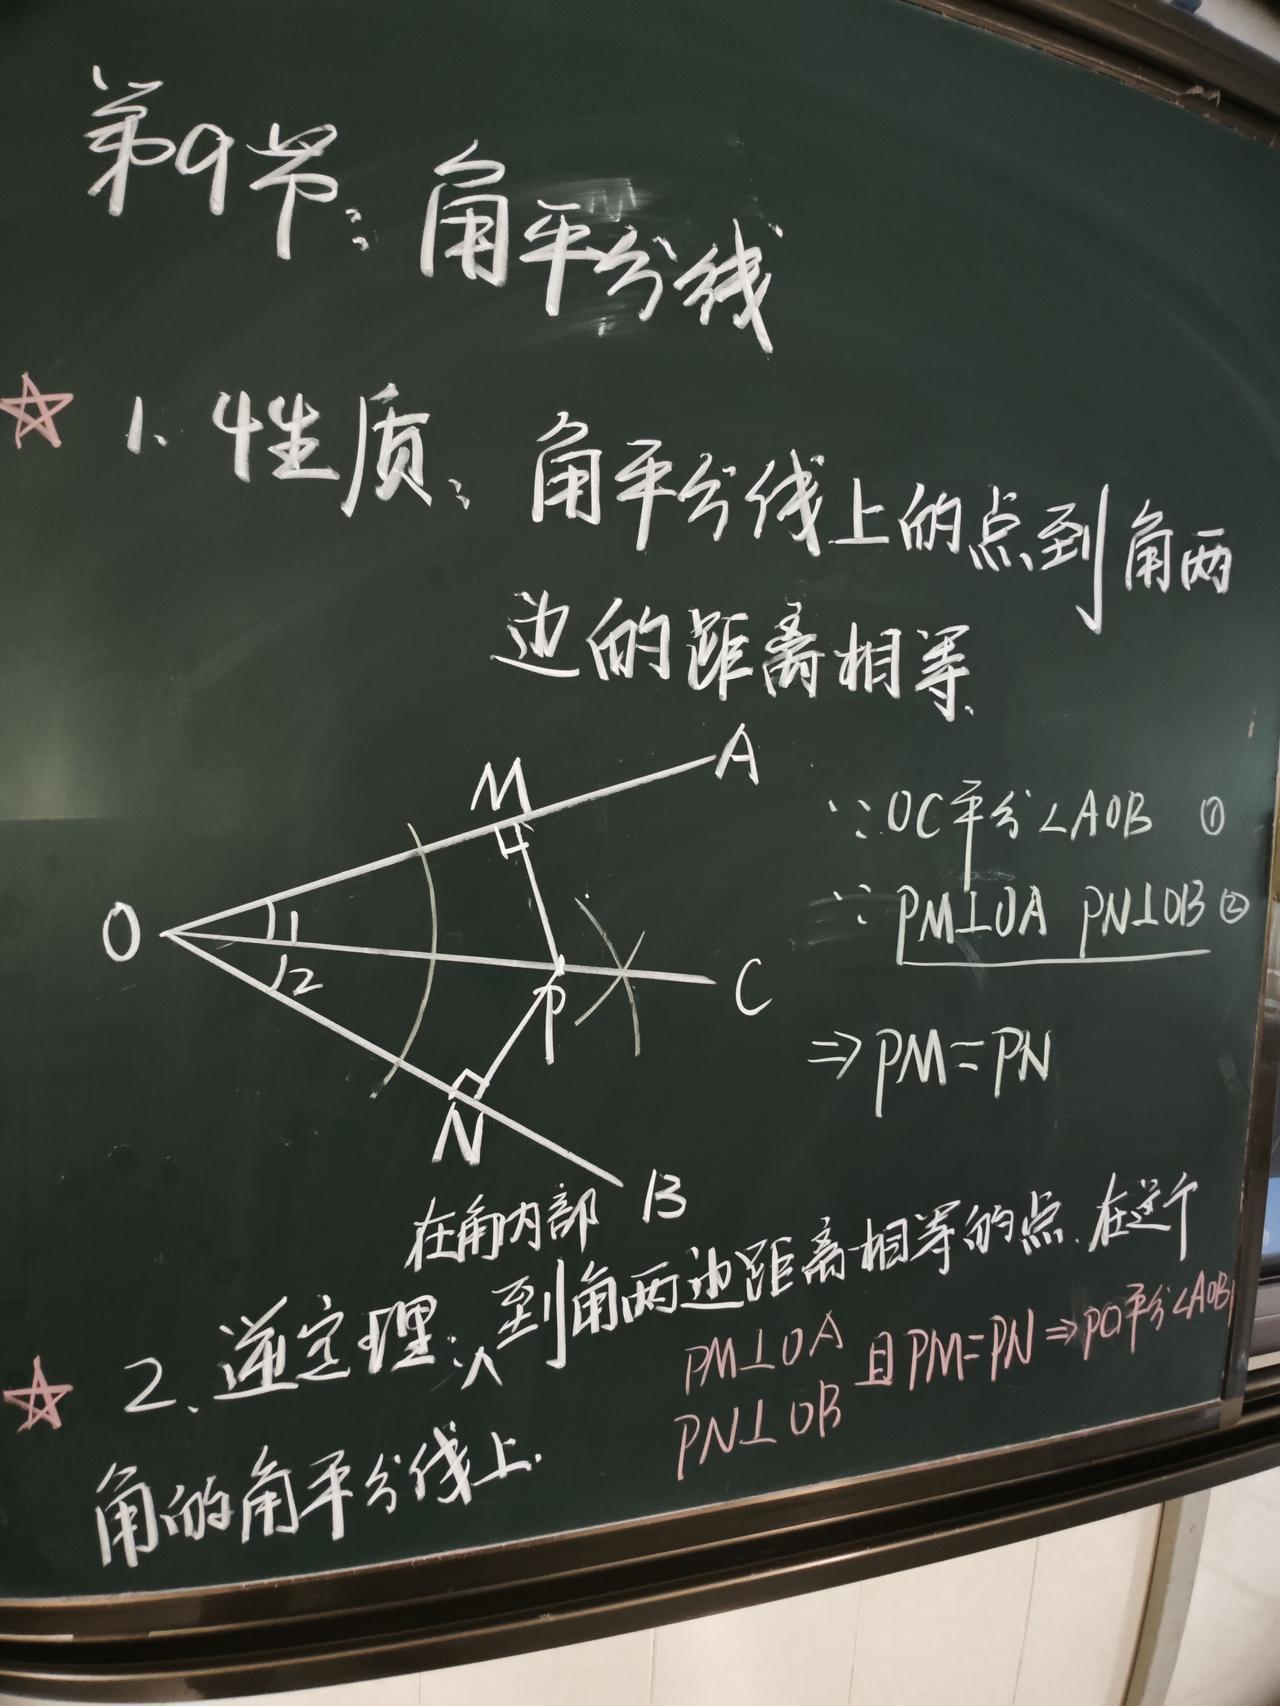 第9节：角平分线
☆ 1. 性质：角平分线上的点到角两
边的距离相等.
M A
O 1 2 P C
N B
∵OC平分∠AOB ①
∵PM⊥OA PN⊥OB ②
⇒PM=PN
在角内部
☆ 2. 逆定理：∧到角两边距离相等的点.在这个
角的角平分线上.
PM⊥OA
PN⊥OB 且PM=PN⇒PO平分∠AOB